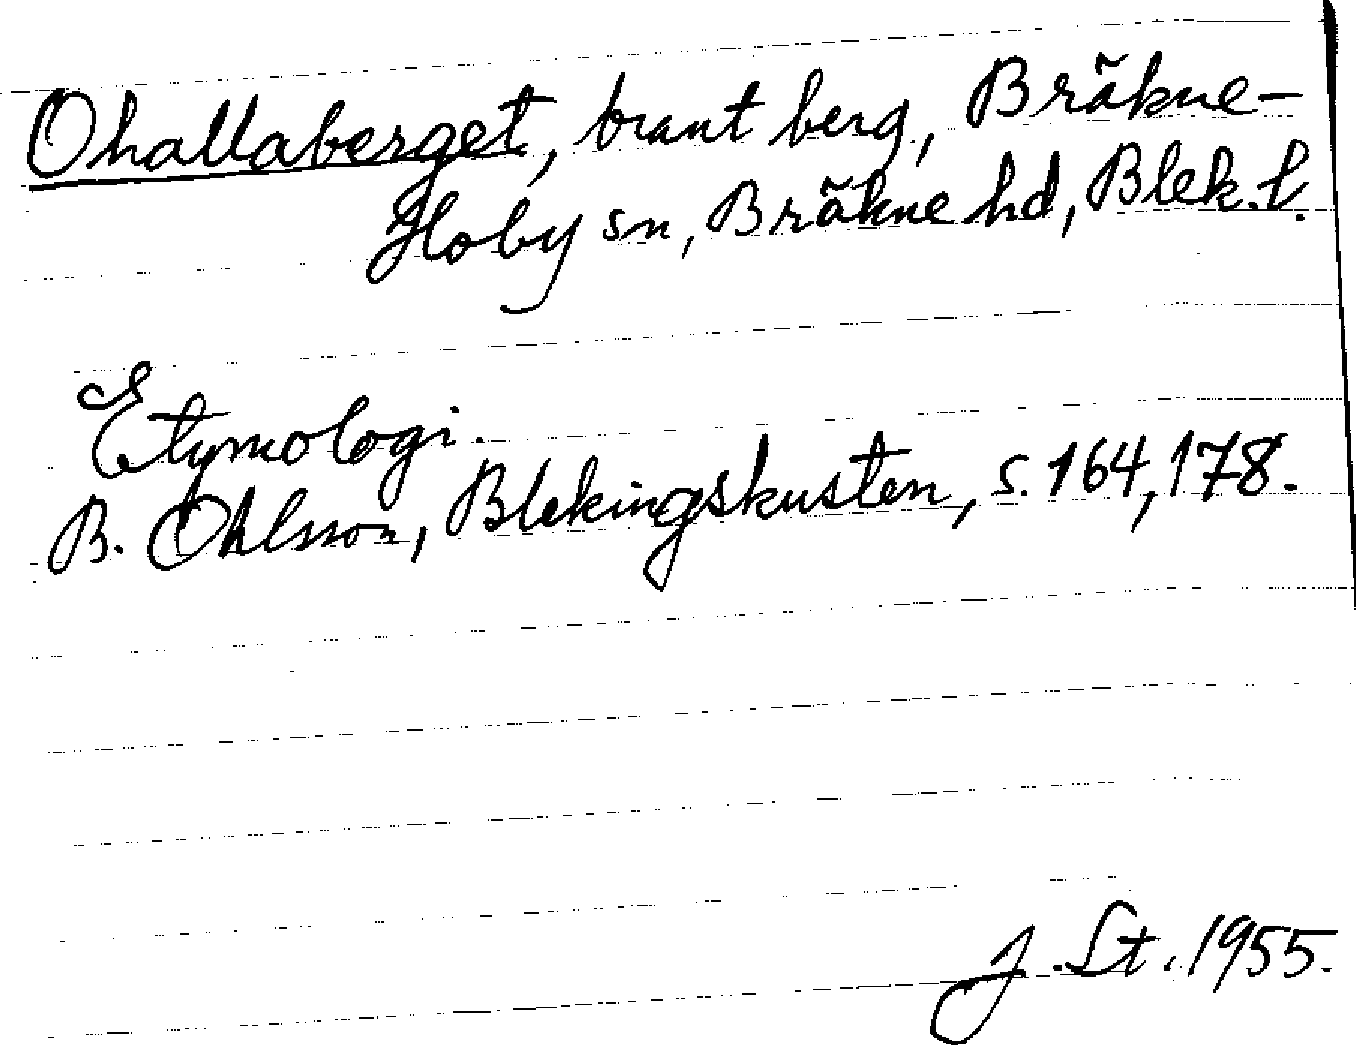 Ohallaberget, brant berg, Bräkne-
Hoby sn, Bräkne hd, Blek. l.
Etymologi.
B. Ohlsson, Blekingskusten, s. 164, 178.
J. St. 1955.